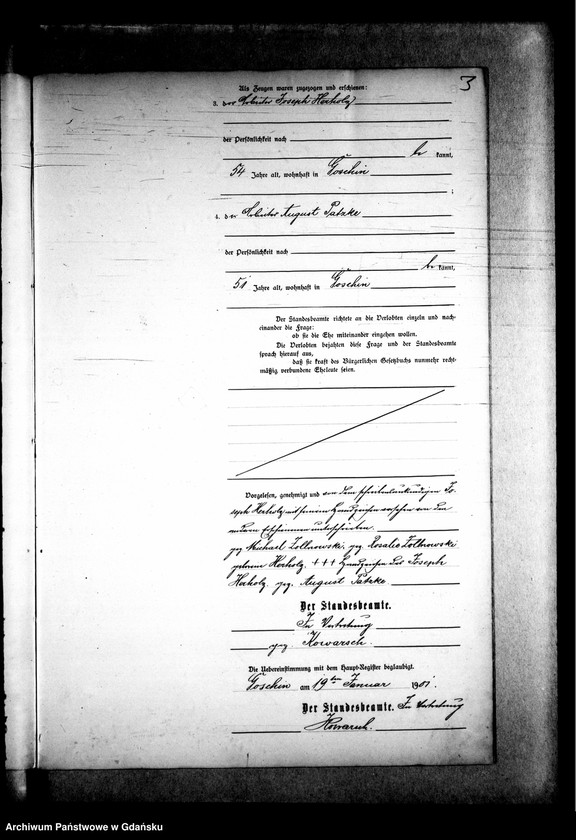 3
Als Zeugen waren zugezogen und erschienen:
3. der Arbeiter Joseph Herholz
der Persönlichkeit nach
be kannt,
54 Jahre alt, wohnhaft in Goschin
;
4. der Arbeiter August Patzke
der Persönlichkeit nach
be kannt,
51 Jahre alt, wohnhaft in Goschin
Der Standesbeamte richtete an die Verlobten einzeln und nach-
einander die Frage:
ob sie die Ehe miteinander eingehen wollen.
Die Verlobten bejahten diese Frage und der Standesbeamte
sprach hierauf aus,
daß sie kraft des Bürgerlichen Gesetzbuchs nunmehr recht-
mäßig verbundene Eheleute seien.
Vorgelesen, genehmigt und von dem schreibensunkundigen Jo-
seph Herholz mit seinem Handzeichen versehen von den
anderen Erschienenen unterschrieben.
gez Michael Zollnowski, gez. Rosalie Zollnowski
geborene Herholz. +++ Handzeichen des Joseph
Herholz. gez. August Patzke
Der Standesbeamte.
In Vertretung
gez Kowarsch.
Die Uebereinstimmung mit dem Haupt-Register beglaubigt.
Goschin am 19ten Januar 1901.
Der Standesbeamte. In Vertretung
Kowarsch.
Archiwum Państwowe w Gdańsku